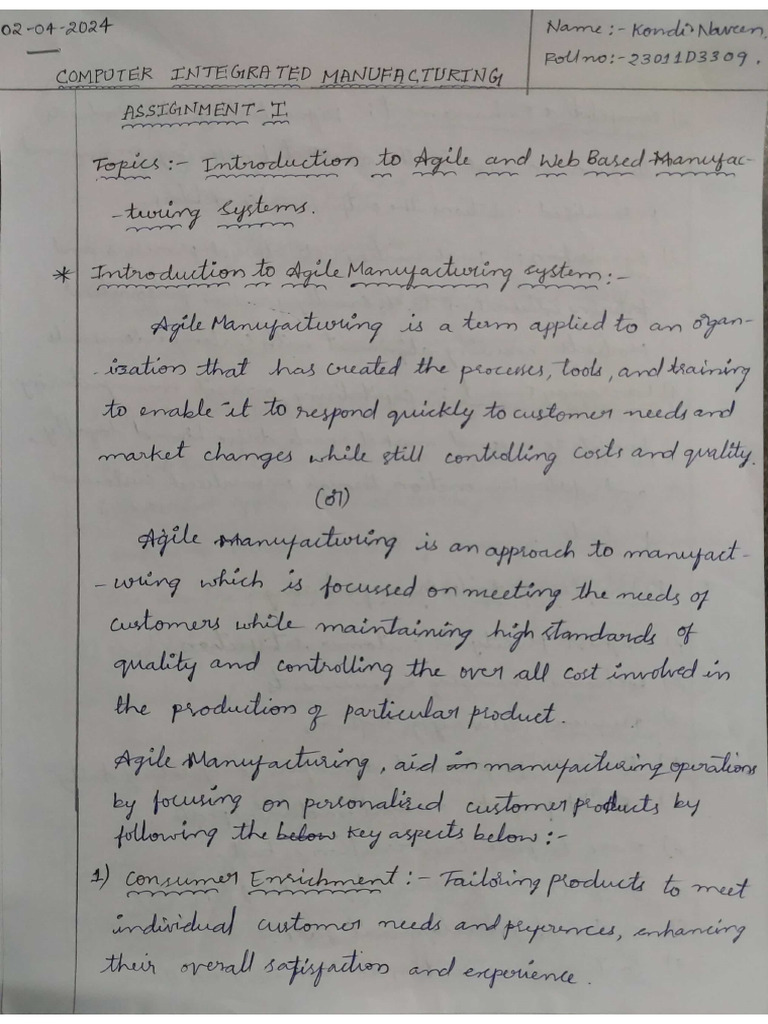 02-04-2024
Name:- Kondi Naveen.
Roll no:- 23011D3309.
COMPUTER INTEGRATED MANUFACTURING
ASSIGNMENT-I
Topics:- Introduction to Agile and Web Based Manufac-
-turing Systems.
* Introduction to Agile Manufacturing system:-
Agile Manufacturing is a term applied to an organ-
-ization that has created the processes, tools, and training
to enable it to respond quickly to customer needs and
market changes while still controlling costs and quality.
(or)
Agile Manufacturing is an approach to manufact-
-uring which is focussed on meeting the needs of
customers while maintaining high standards of
quality and controlling the over all cost involved in
the production of particular product.
Agile Manufacturing, aid in manufacturing operations
by focusing on personalized customer products by
following the below key aspects below:-
1) Consumer Enrichment:- Tailoring products to meet
individual customer needs and preferences, enhancing
their overall satisfaction and experience.